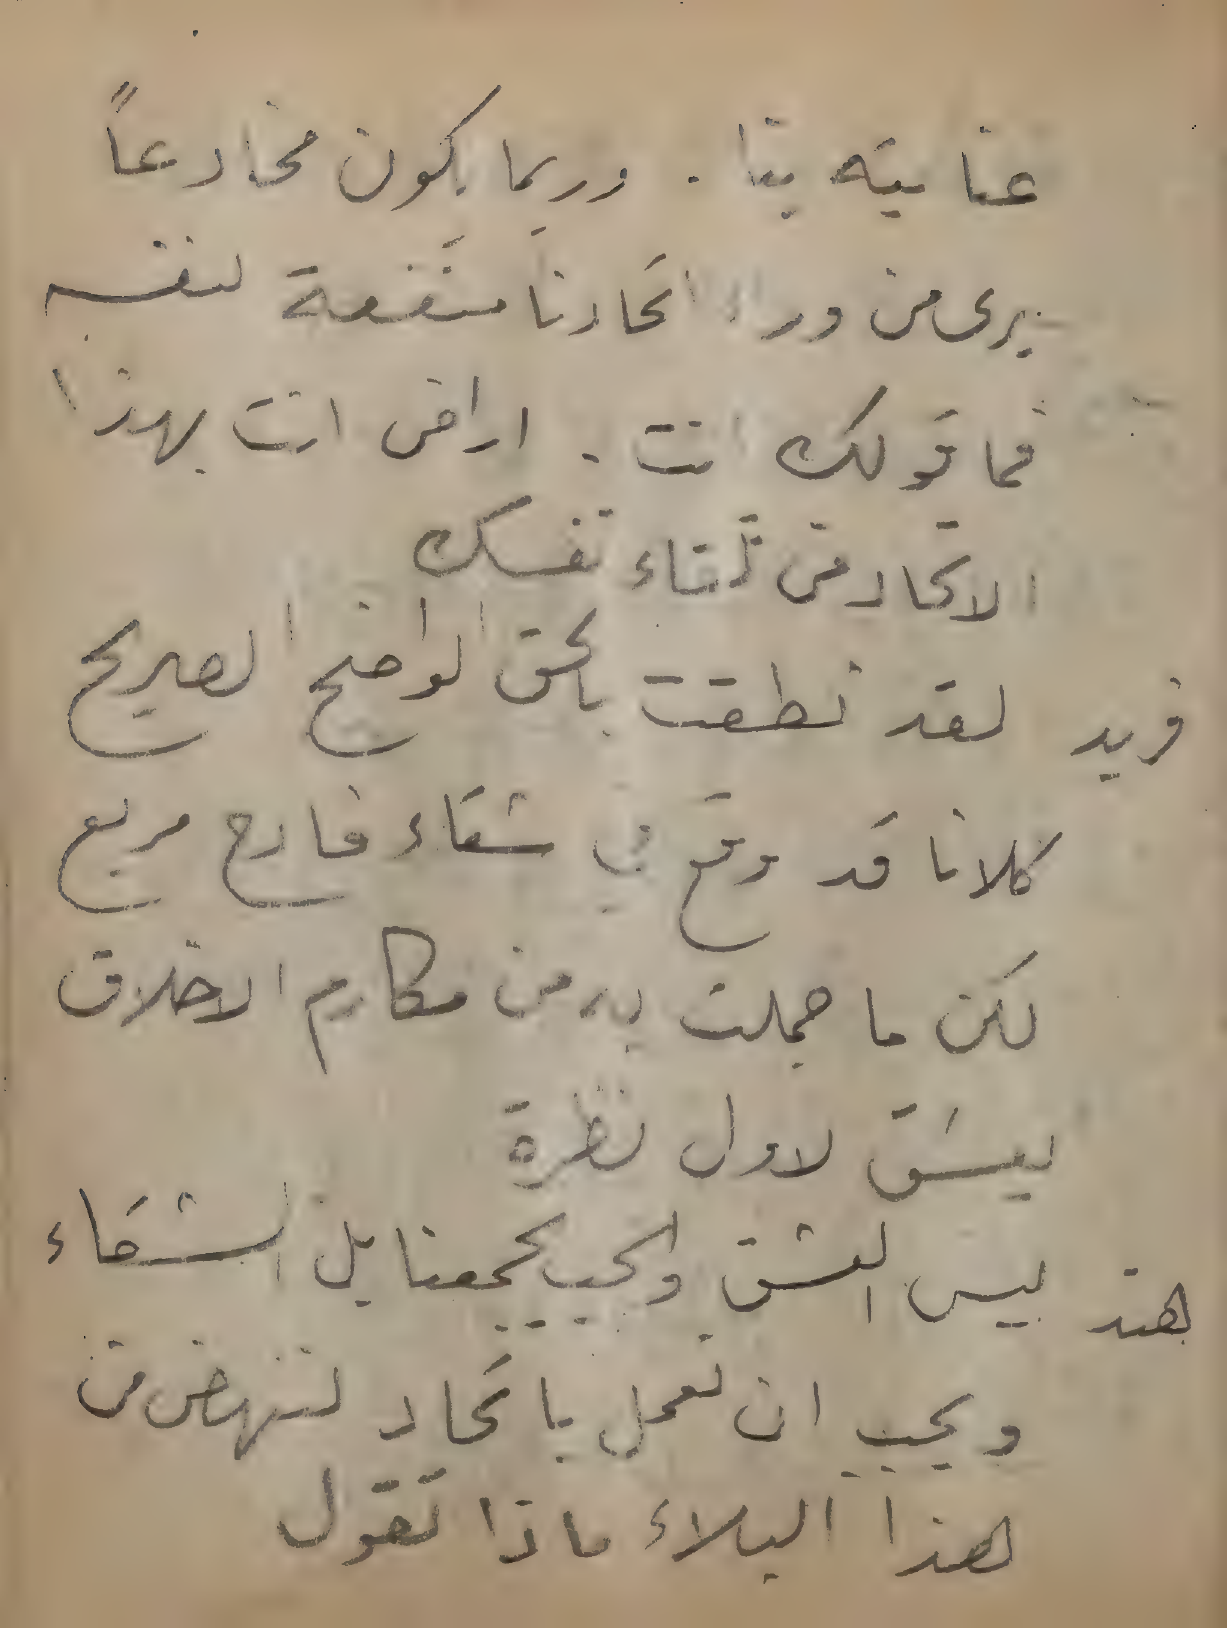 عنايته بنا . وربما يكون مخادعاً
يرى من وراء اتحادنا منفعة لنفسه
فما قولك انت . اراض انت بهذا
الاتحاد من تلقاء نفسك
فريد لقد نطقت بالحق الواضح الصريح
كلانا قد وقع في شقاء فادح مريع
لكن ما جملت به من مكارم الاخلاق
يعشق لاول نظرة
هند ليس العشق والحب يجمعنا بل الشقاء
ويجب ان نعمل باتحاد لننهض من
هذا البلاء ماذا تقول